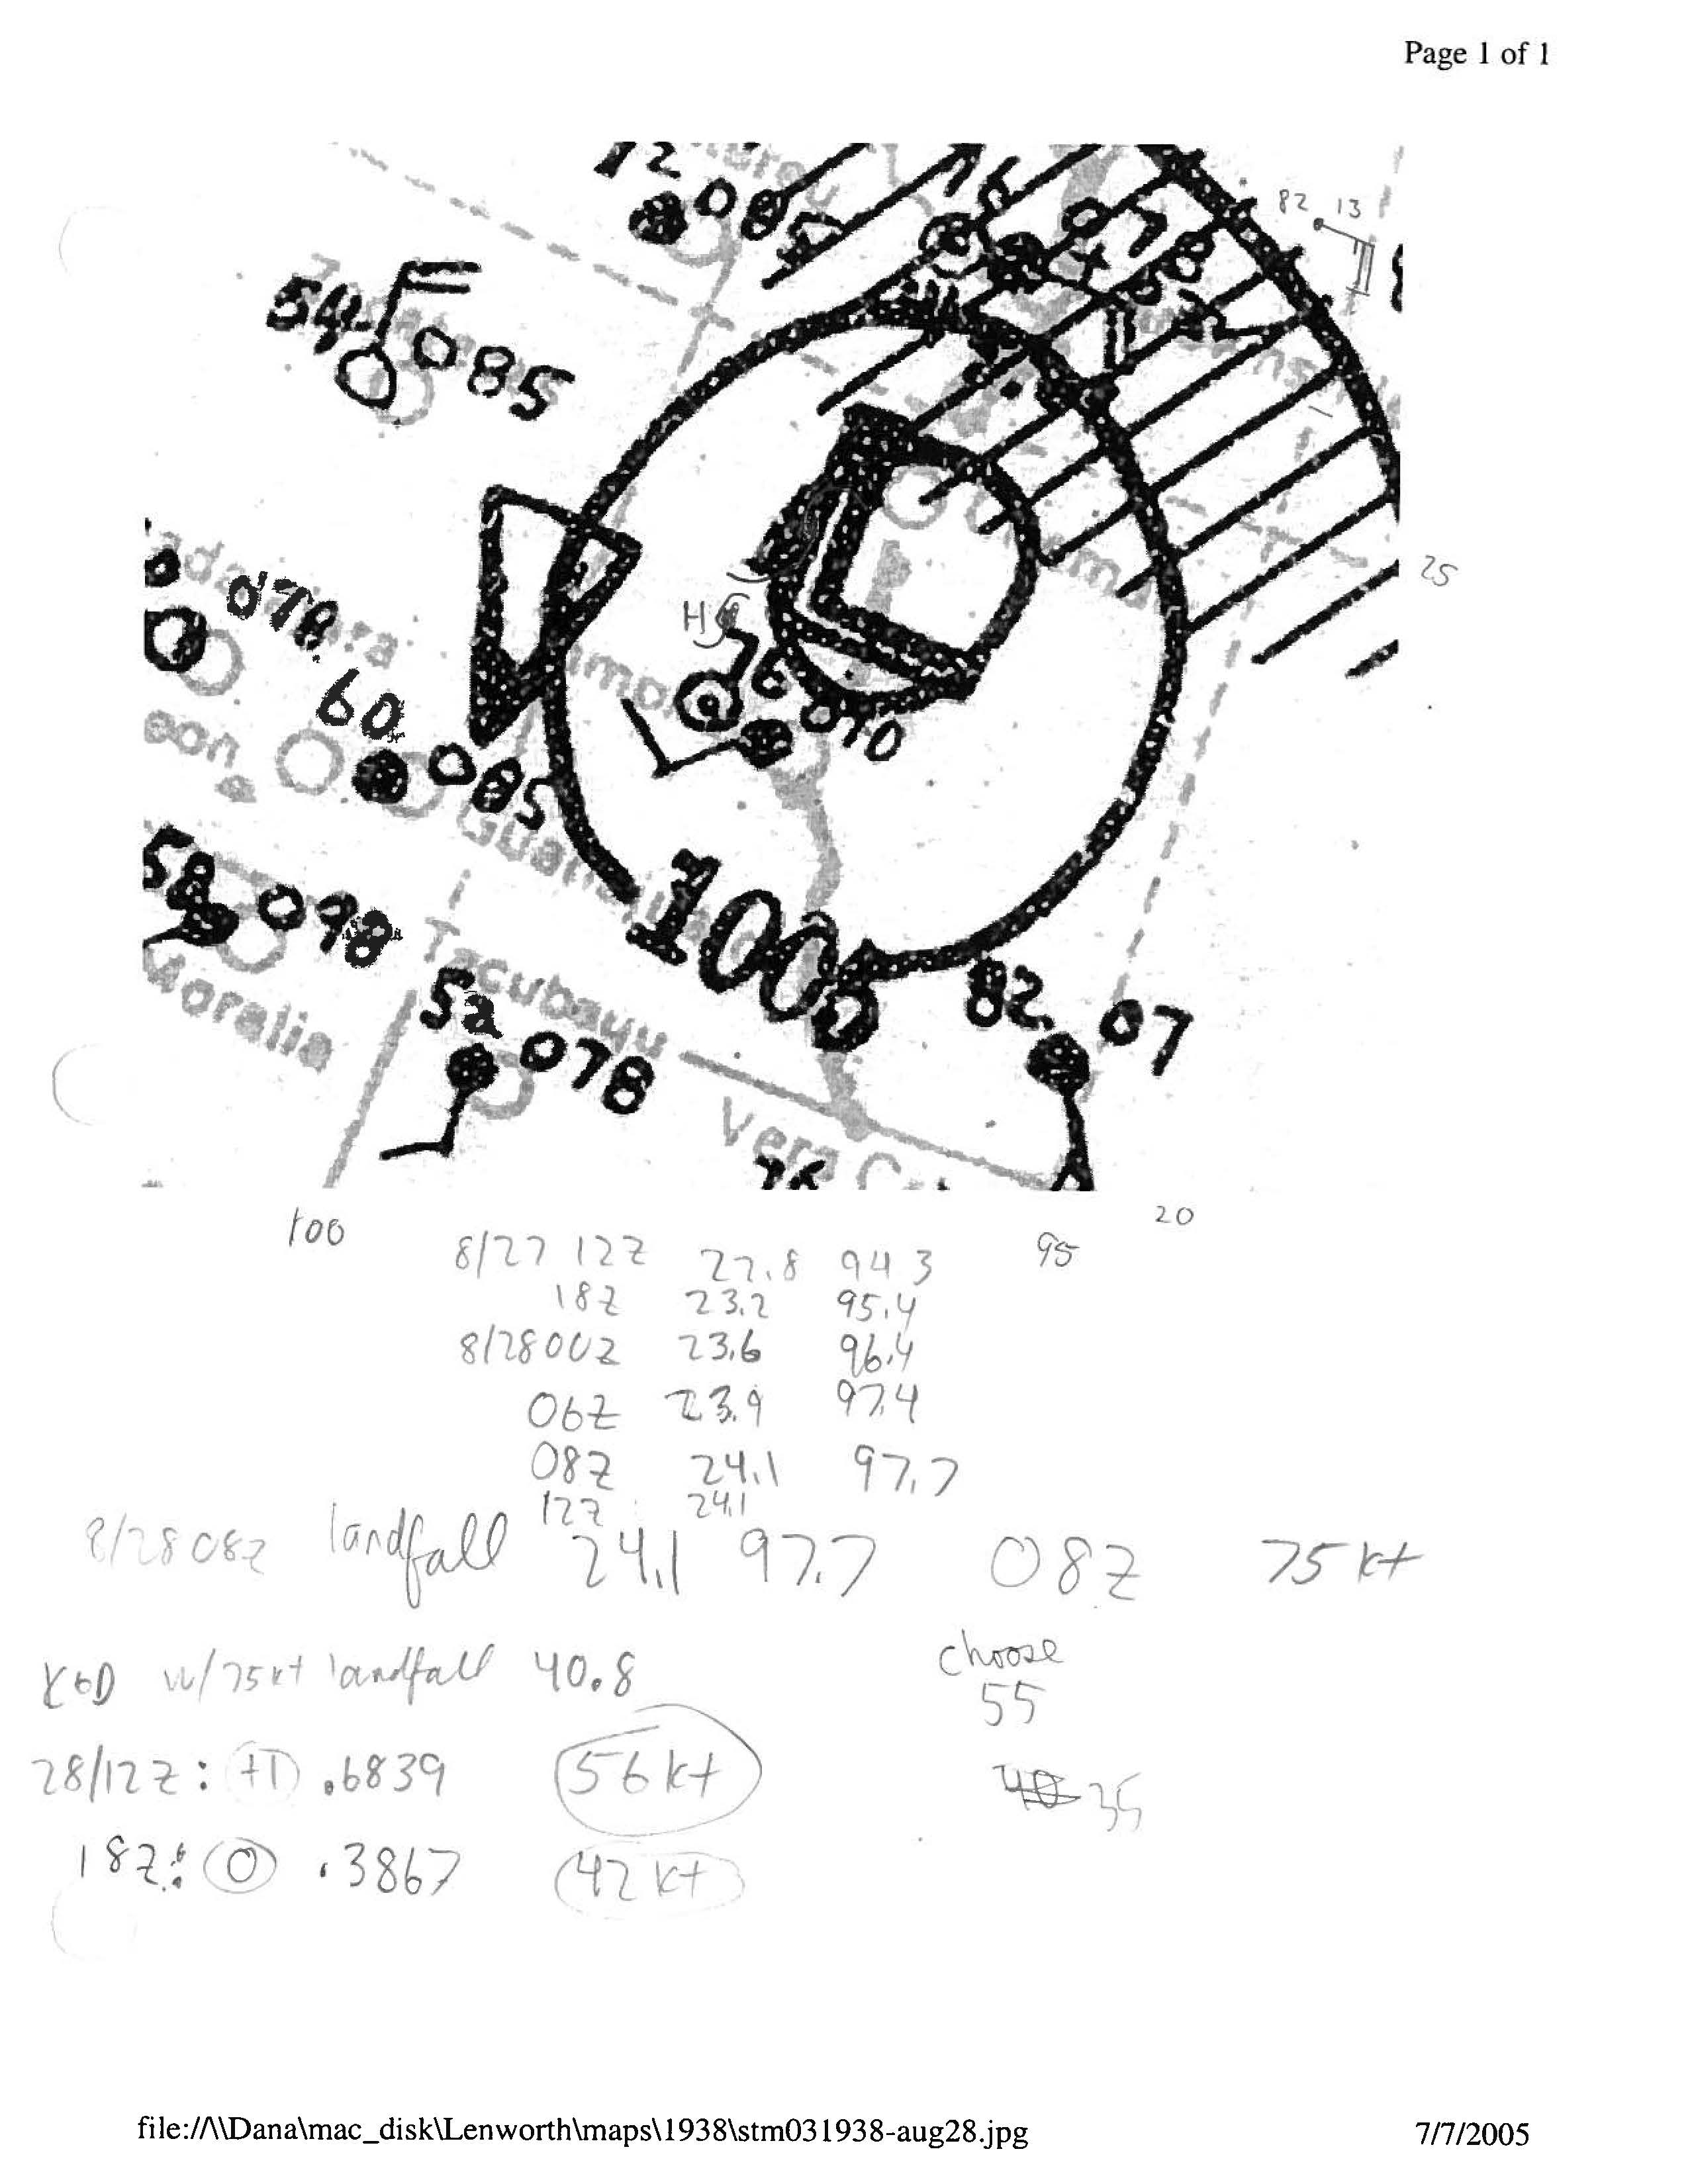 Page 1 of 1
085
82 13
54 085
078
60
085
25
H
76
010
eon
58 098
Tacubaya
Morelia
1005
52 078
82 07
Vera
76
100
20
95
8/27 12Z 22.8 94 3
18Z 23.2 95.4
8/28 00Z 23.6 96.4
06Z 23.9 97.4
08Z 24.1 97.7
12Z 24.1
8/28 08Z landfall 24.1 97.7 08Z 75 kt
K&D w/75kt landfall 40.8
choose
55
28/12Z: +1 .6839 56 kt
40 35
18Z: 0 .3867 42 kt
file://\\Dana\mac_disk\Lenworth\maps\1938\stm031938-aug28.jpg
7/7/2005